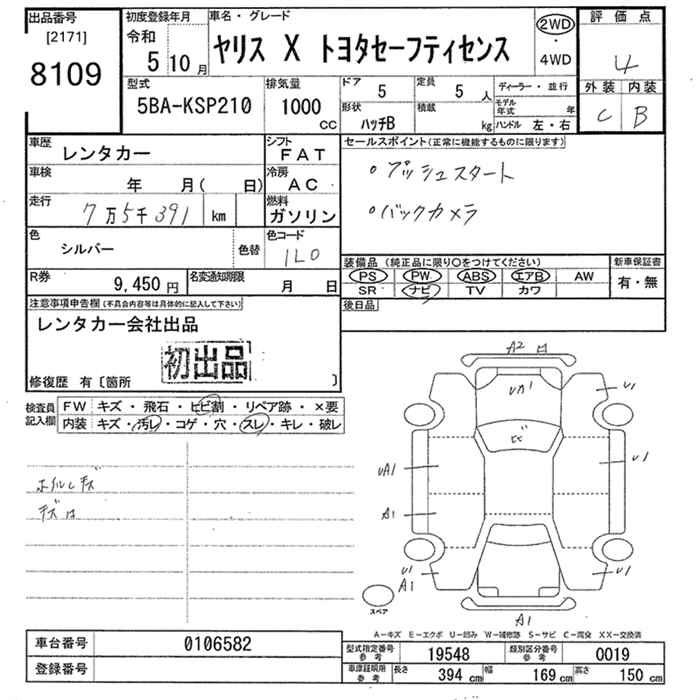 出品番号
[2171]
8109
初度登録年月
令和 5年 10月
車名・グレード
ヤリス X トヨタセーフティセンス
2WD
・
4WD
評価点
4
外装 内装
C B
型式
5BA-KSP210
排気量
1000 CC
ドア 5
形状 ハッチB
定員 5 人
積載 kg
ディーラー・並行
モデル年式 年
ハンドル 左・右
車歴
レンタカー
シフト FAT
車検 年 月( 日)
冷房 AC
走行 7万5千391 km
燃料 ガソリン
色 シルバー 色替
色コード 1L0
R券 9,450円
名変通知期限 月 日
セールスポイント(正常に機能するものに限ります)
・プッシュスタート
・バックカメラ
装備品(純正品に限り○をつけてください)
PS PW ABS エアB AW
SR ナビ TV カワ
新車保証書
有・無
後日品
注意事項申告欄(不具合内容等は具体的に記入して下さい)
レンタカー会社出品
初出品
修復歴 有〔箇所 〕
検査員記入欄
FW キズ・飛石・ヒビ割・リペア跡・×要
内装 キズ・汚レ・コゲ・穴・スレ・キレ・破レ
ホイルしキズ
キズ凹
A2 凹
UA1
U1
ヒビ
UA1
U1
A1
U1
A1
U1
A1
スペア
A−キズ E−エクボ U−凹み W−補修跡 S−サビ C−腐食 XX−交換済
車台番号 0106582
登録番号
型式指定番号参考 19548
類別区分番号参考 0019
車庫証明用参考 長さ 394 cm 幅 169 cm 高さ 150 cm